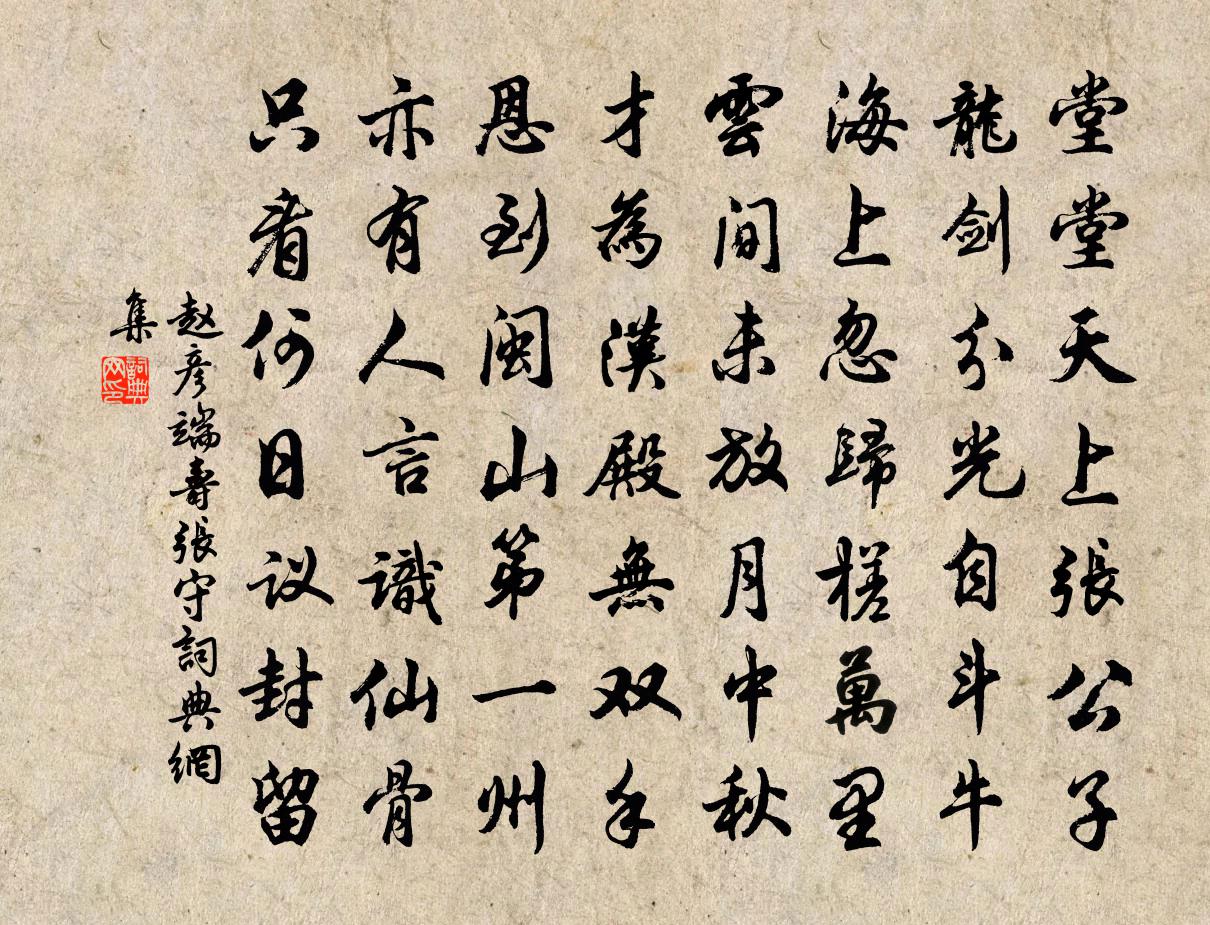 堂堂天上張公子
龍劍分光自斗牛
海上忽歸槎萬里
雲間未放月中秋
才為漢殿無双手
恩到閩山第一州
亦有人言識仙骨
只看何日议封留
赵彥端壽張守詞典網
集
詞典網印